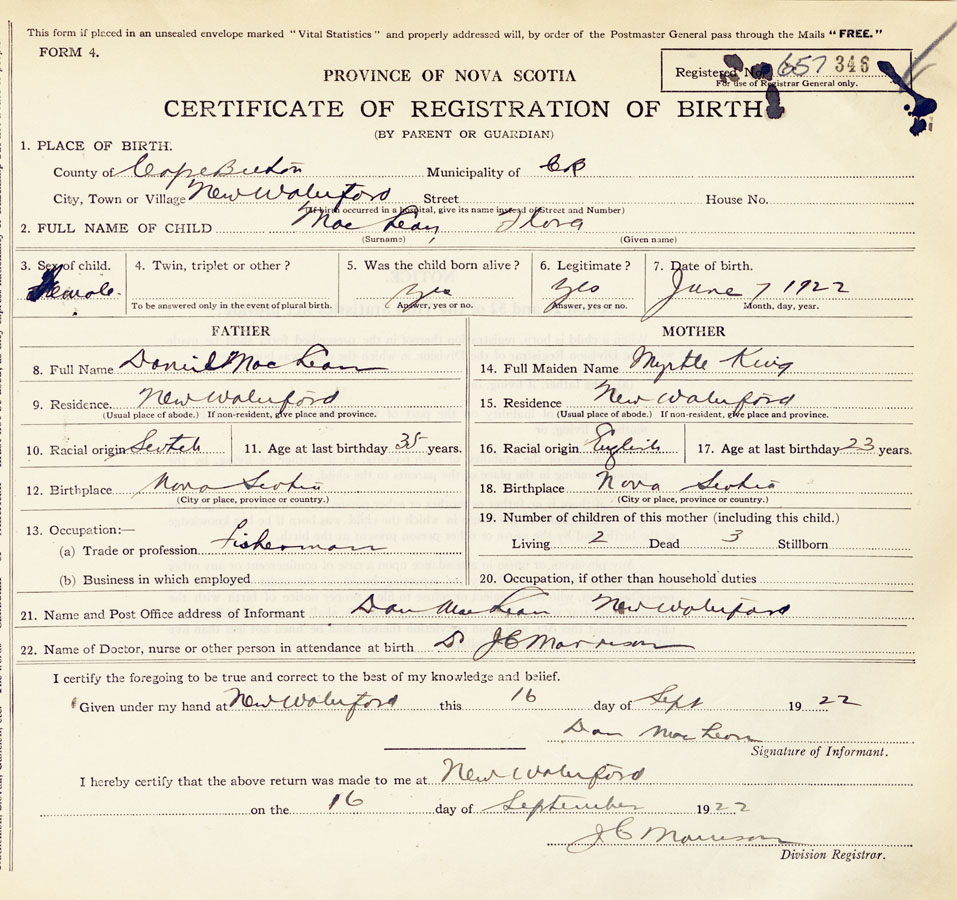 This form if placed in an unsealed envelope marked "Vital Statistics" and properly addressed will, by order of the Postmaster General pass through the Mails "FREE."
FORM 4.
Registered No. 657 346
For use of Registrar General only.
PROVINCE OF NOVA SCOTIA
CERTIFICATE OF REGISTRATION OF BIRTH
(BY PARENT OR GUARDIAN)
1. PLACE OF BIRTH.
County of Cape Breton Municipality of CB
City, Town or Village New Waterford Street House No.
(If birth occurred in a hospital, give its name instead of Street and Number)
2. FULL NAME OF CHILD MacLean, Flora
(Surname) (Given name)
3. Sex of child. 4. Twin, triplet or other? 5. Was the child born alive? 6. Legitimate? 7. Date of birth.
Female. Yes Yes June 7 1922
To be answered only in the event of plural birth. Answer, yes or no. Answer, yes or no. Month, day, year.
FATHER MOTHER
8. Full Name Daniel MacLean 14. Full Maiden Name Myrtle King
9. Residence New Waterford 15. Residence New Waterford
(Usual place of abode.) If non-resident, give place and province. (Usual place of abode.) If non-resident, give place and province.
10. Racial origin Scotch 11. Age at last birthday 35 years. 16. Racial origin English 17. Age at last birthday 23 years.
12. Birthplace Nova Scotia 18. Birthplace Nova Scotia
(City or place, province or country.) (City or place, province or country.)
13. Occupation:— 19. Number of children of this mother (including this child.)
(a) Trade or profession Fisherman Living 2 Dead 3 Stillborn
(b) Business in which employed 20. Occupation, if other than household duties
21. Name and Post Office address of Informant Dan MacLean New Waterford
22. Name of Doctor, nurse or other person in attendance at birth Dr JC Morrison
I certify the foregoing to be true and correct to the best of my knowledge and belief.
Given under my hand at New Waterford this 16 day of Sept 1922
Dan MacLean
Signature of Informant.
I hereby certify that the above return was made to me at New Waterford
on the 16 day of September 1922
JC Morrison
Division Registrar.